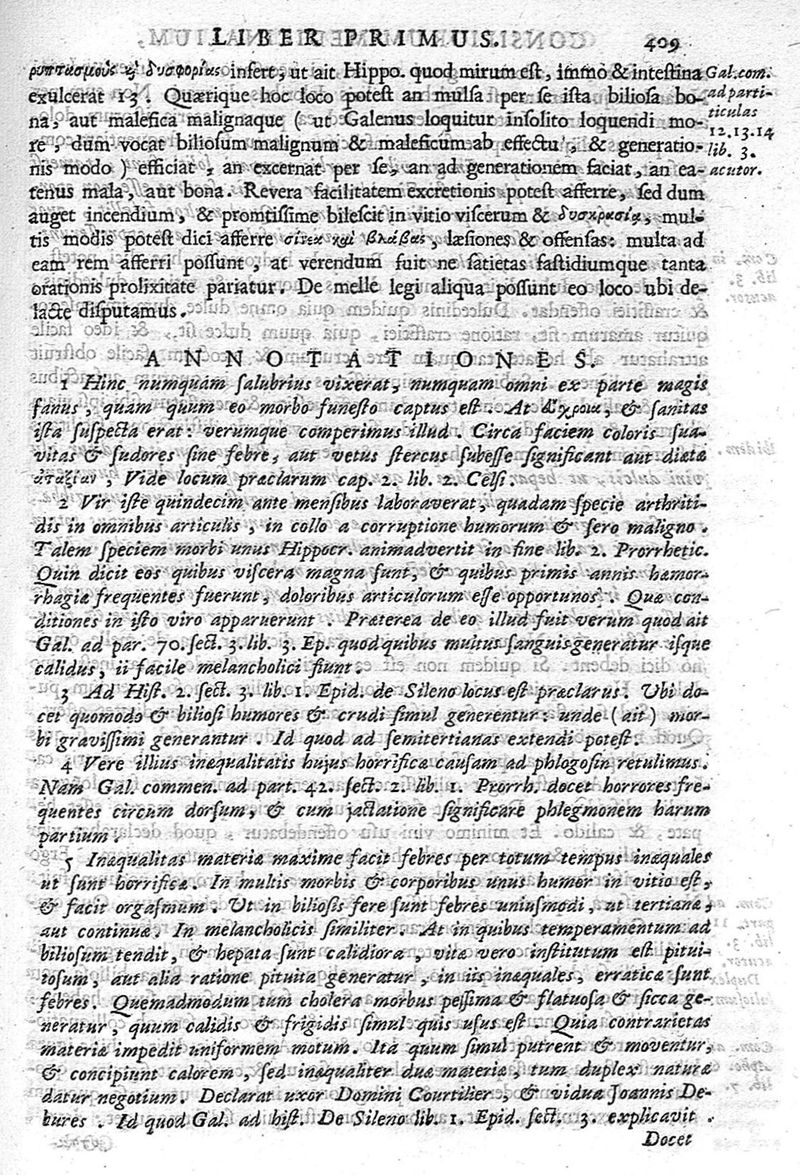 LIBER PRIMUS. 409
ῥιπτασμοὺς & δυσφορίας infert, ut ait Hippo. quod mirum est, immò & intestina
exulcerat 13. Quærique hoc loco potest an mulsa per se ista biliosa bo-
na, aut malefica malignaque ( ut Galenus loquitur insolito loquendi mo-
re, dum vocat biliosum malignum & maleficum ab effectu, & generatio-
nis modo ) efficiat, an excernat per se, an ad generationem faciat, an ea-
tenus mala, aut bona. Revera facilitatem excretionis potest afferre, sed dum
auget incendium, & promtissime bilescit in vitio viscerum & δυσκρασίᾳ, mul-
tis modis potest dici afferre σίνεα καὶ βλάβας, læsiones & offensas: multa ad
eam rem afferri possunt, at verendum fuit ne satietas fastidiumque tanta
orationis prolixitate pariatur. De melle legi aliqua possunt eo loco ubi de
lacte disputamus.
Gal. com.
ad parti-
ticulas
12.13.14
lib. 3.
acutor.
ANNOTATIONES.
1 Hinc numquam salubrius vixerat, numquam omni ex parte magis
sanus, quam quum eo morbo funesto captus est. At εὔχροια, & sanitas
ista suspecta erat: verumque comperimus illud. Circa faciem coloris sua-
vitas & sudores sine febre, aut vetus stercus subesse significant aut diætæ
ἀταξίαν, Vide locum præclarum cap. 2. lib. 2. Celsi.
2 Vir iste quindecim ante mensibus laboraverat, quadam specie arthriti-
dis in omnibus articulis, in collo a corruptione humorum & sero maligno.
Talem speciem morbi unus Hippocr. animadvertit in fine lib. 2. Prorrhetic.
Quin dicit eos quibus viscera magna sunt, & quibus primis annis hæmor-
rhagiæ frequentes fuerunt, doloribus articulorum esse opportunos. Quæ con-
ditiones in isto viro apparuerunt. Præterea de eo illud fuit verum quod ait
Gal. ad par. 70. sect. 3. lib. 3. Ep. quod quibus multus sanguis generatur isque
calidus, ii facile melancholici fiunt.
3 Ad Hist. 2. sect. 3. lib. 1. Epid. de Sileno locus est præclarus. Ubi do-
cet quomodo & biliosi humores & crudi simul generentur: unde (ait) mor-
bi gravissimi generantur. Id quod ad semitertianas extendi potest.
4 Vere illius inæqualitatis hujus horrificæ causam ad phlogosin retulimus.
Nam Gal. commen. ad part. 42. sect. 2. lib. 1. Prorrh. docet horrores fre-
quentes circum dorsum, & cum jactatione significare phlegmonem harum
partium.
5 Inæqualitas materiæ maxime facit febres per totum tempus inæquales
ut sunt horrificæ. In multis morbis & corporibus unus humor in vitio est,
& facit orgasmum. Ut in biliosis fere sunt febres uniusmodi, ut tertianæ,
aut continuæ. In melancholicis similiter. At in quibus temperamentum ad
biliosum tendit, & hepata sunt calidiora, vitæ vero institutum est pitui-
tosum, aut alia ratione pituita generatur, in iis inæquales, erraticæ sunt
febres. Quemadmodum tum cholera morbus pessima & flatuosa & sicca ge-
neratur, quum calidis & frigidis simul quis usus est. Quia contrarietas
materiæ impedit uniformem motum. Ita quum simul putrent & moventur,
& concipiunt calorem, sed inæqualiter duæ materiæ, tum duplex naturæ
datur negotium. Declarat uxor Domini Courtilier, & vidua Joannis De-
bures. Id quod Gal. ad hist. De Sileno lib. 1. Epid. sect. 3. explicavit.
Docet